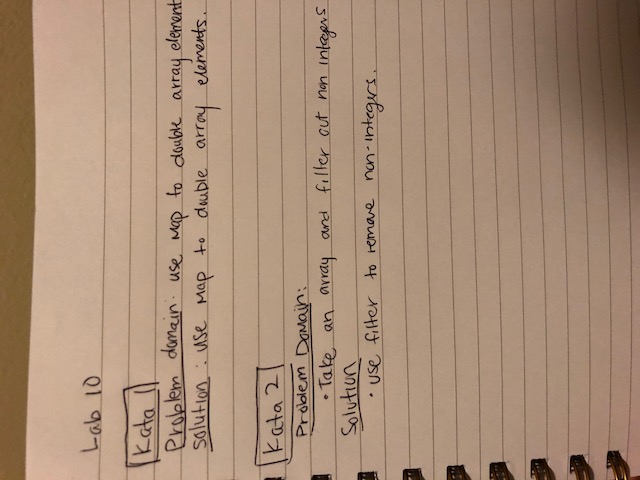 Lab 10
Kata 1
Problem domain: use Map to double array element
Solution: use Map to double array elements.
Kata 2
Problem Domain:
• Take an array and filter out non integers
Solution
• use filter to remove non-integers.